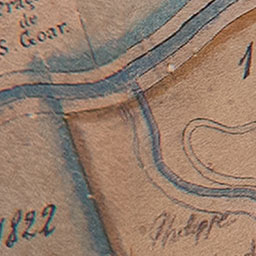 de
S. Goar.
1
1822
Philippe